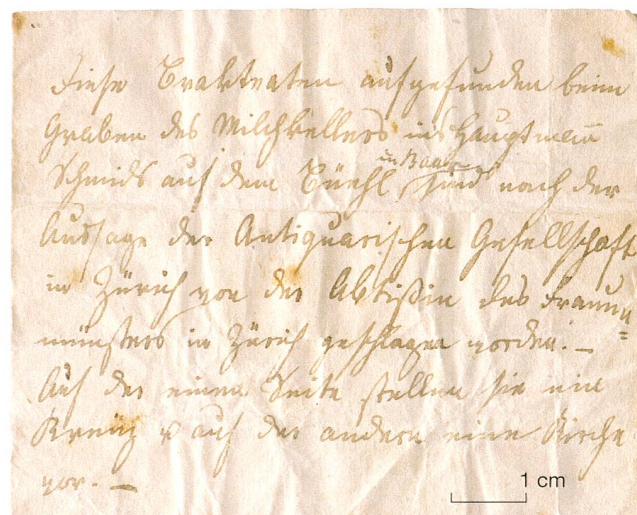 Diese Brakteaten aufgefunden beim
Graben des Milchkellers in Hauptmann
Schmids auf dem Büehl in Baar sind nach der
Aussage der Antiquarischen Gesellschaft
in Zürich von der Abtißin des Fraum=
münsters in Zürich geschlagen worden. –
Auf der einen Seite stellen sie ein
Kreuz & auf der andern eine Kirche
vor. –
1 cm